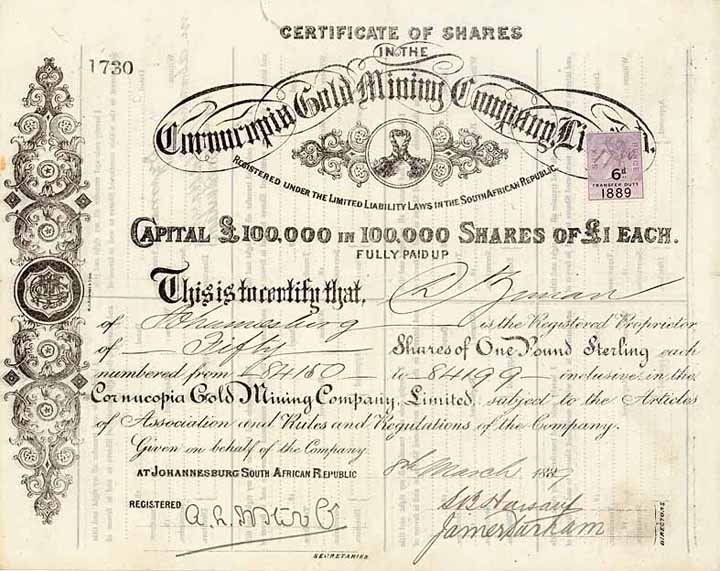 CERTIFICATE OF SHARES
IN THE
1730
Cornucopia Gold Mining Company, Li
REGISTERED UNDER THE LIMITED LIABILITY LAWS IN THE SOUTH AFRICAN REPUBLIC
6d
TRANSFER DUTY
1889
CAPITAL £100,000 IN 100,000 SHARES OF £1 EACH.
FULLY PAID UP
This is to certify that,
of Johannesburg is the Registered Proprietor
of Fifty Shares of One Pound Sterling each
numbered from 84150 to 84199 inclusive in the
Cornucopia Gold Mining Company, Limited, subject to the Articles
of Association and Rules and Regulations of the Company.
Given on behalf of the Company
AT JOHANNESBURG SOUTH AFRICAN REPUBLIC 8th March 1889
REGISTERED
James Durham
DIRECTORS
SECRETARIES